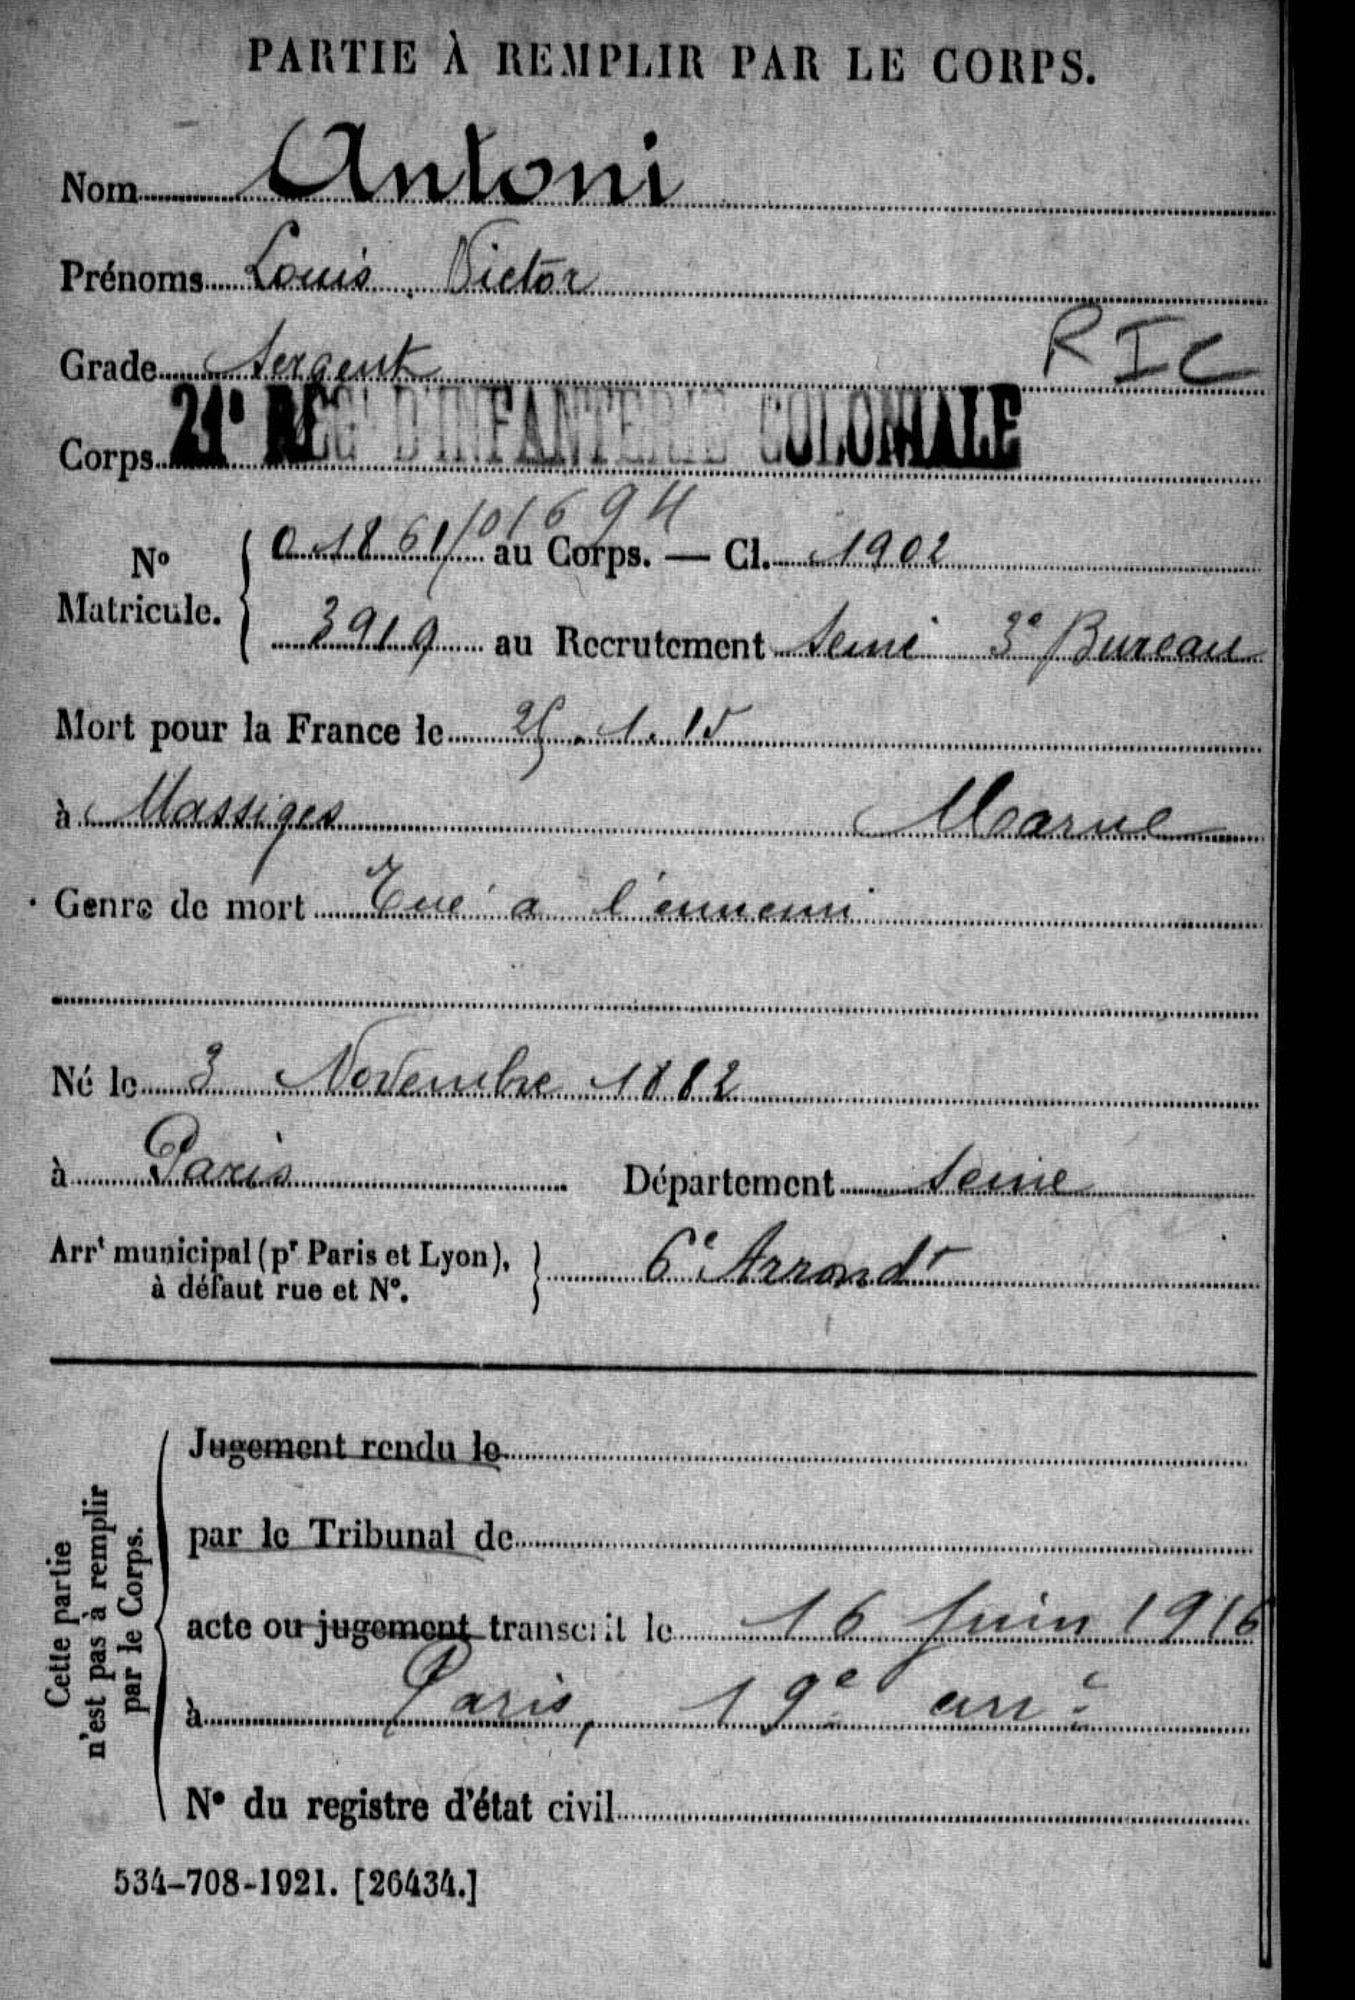 PARTIE À REMPLIR PAR LE CORPS.
Nom Antoni
Prénoms Louis Victor
Grade Sergent
RIC
Corps 21e RÉGt D'INFANTERIE COLONIALE
No Matricule. 01861/01694 au Corps. — Cl. 1902
3919 au Recrutement Seine 3e Bureau
Mort pour la France le 25.1.15
à Massiges Marne
Genre de mort Tué à l'ennemi
Né le 3 Novembre 1882
à Paris Département Seine
Arrt municipal (pr Paris et Lyon), à défaut rue et No. 6e Arrondt
Cette partie n'est pas à remplir par le Corps.
Jugement rendu le
par le Tribunal de
acte ou jugement transcrit le 16 Juin 1916
à Paris, 19e arre
No du registre d'état civil
534-708-1921. [26434.]